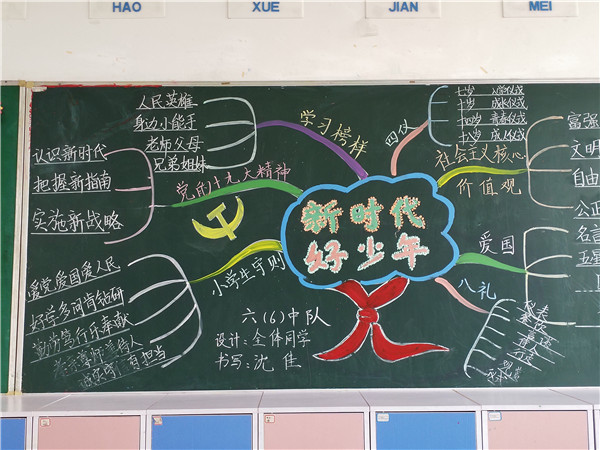 HAO
XUE
JIAN
MEI
新时代
好少年
学习榜样
人民英雄
身边小能手
老师父母
兄弟姐妹
党的十九大精神
认识新时代
把握新指南
实施新战略
小学生守则
爱党爱国爱人民
好学多问肯钻研
勤劳笃行乐奉献
诚实守信有担当
四仪
七岁 入学仪式
十岁 成长仪式
十四岁 青春仪式
十八岁 成人仪式
社会主义核心
价值观
富强
文明
自由
公正
爱国
名言
五星
八礼
六(6)中队
设计:全体同学
书写:沈佳